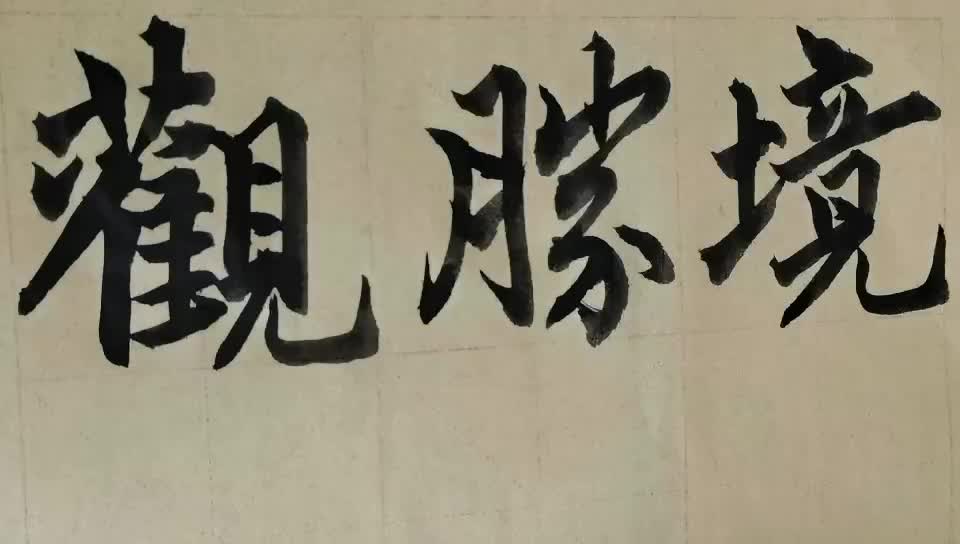 觀勝境